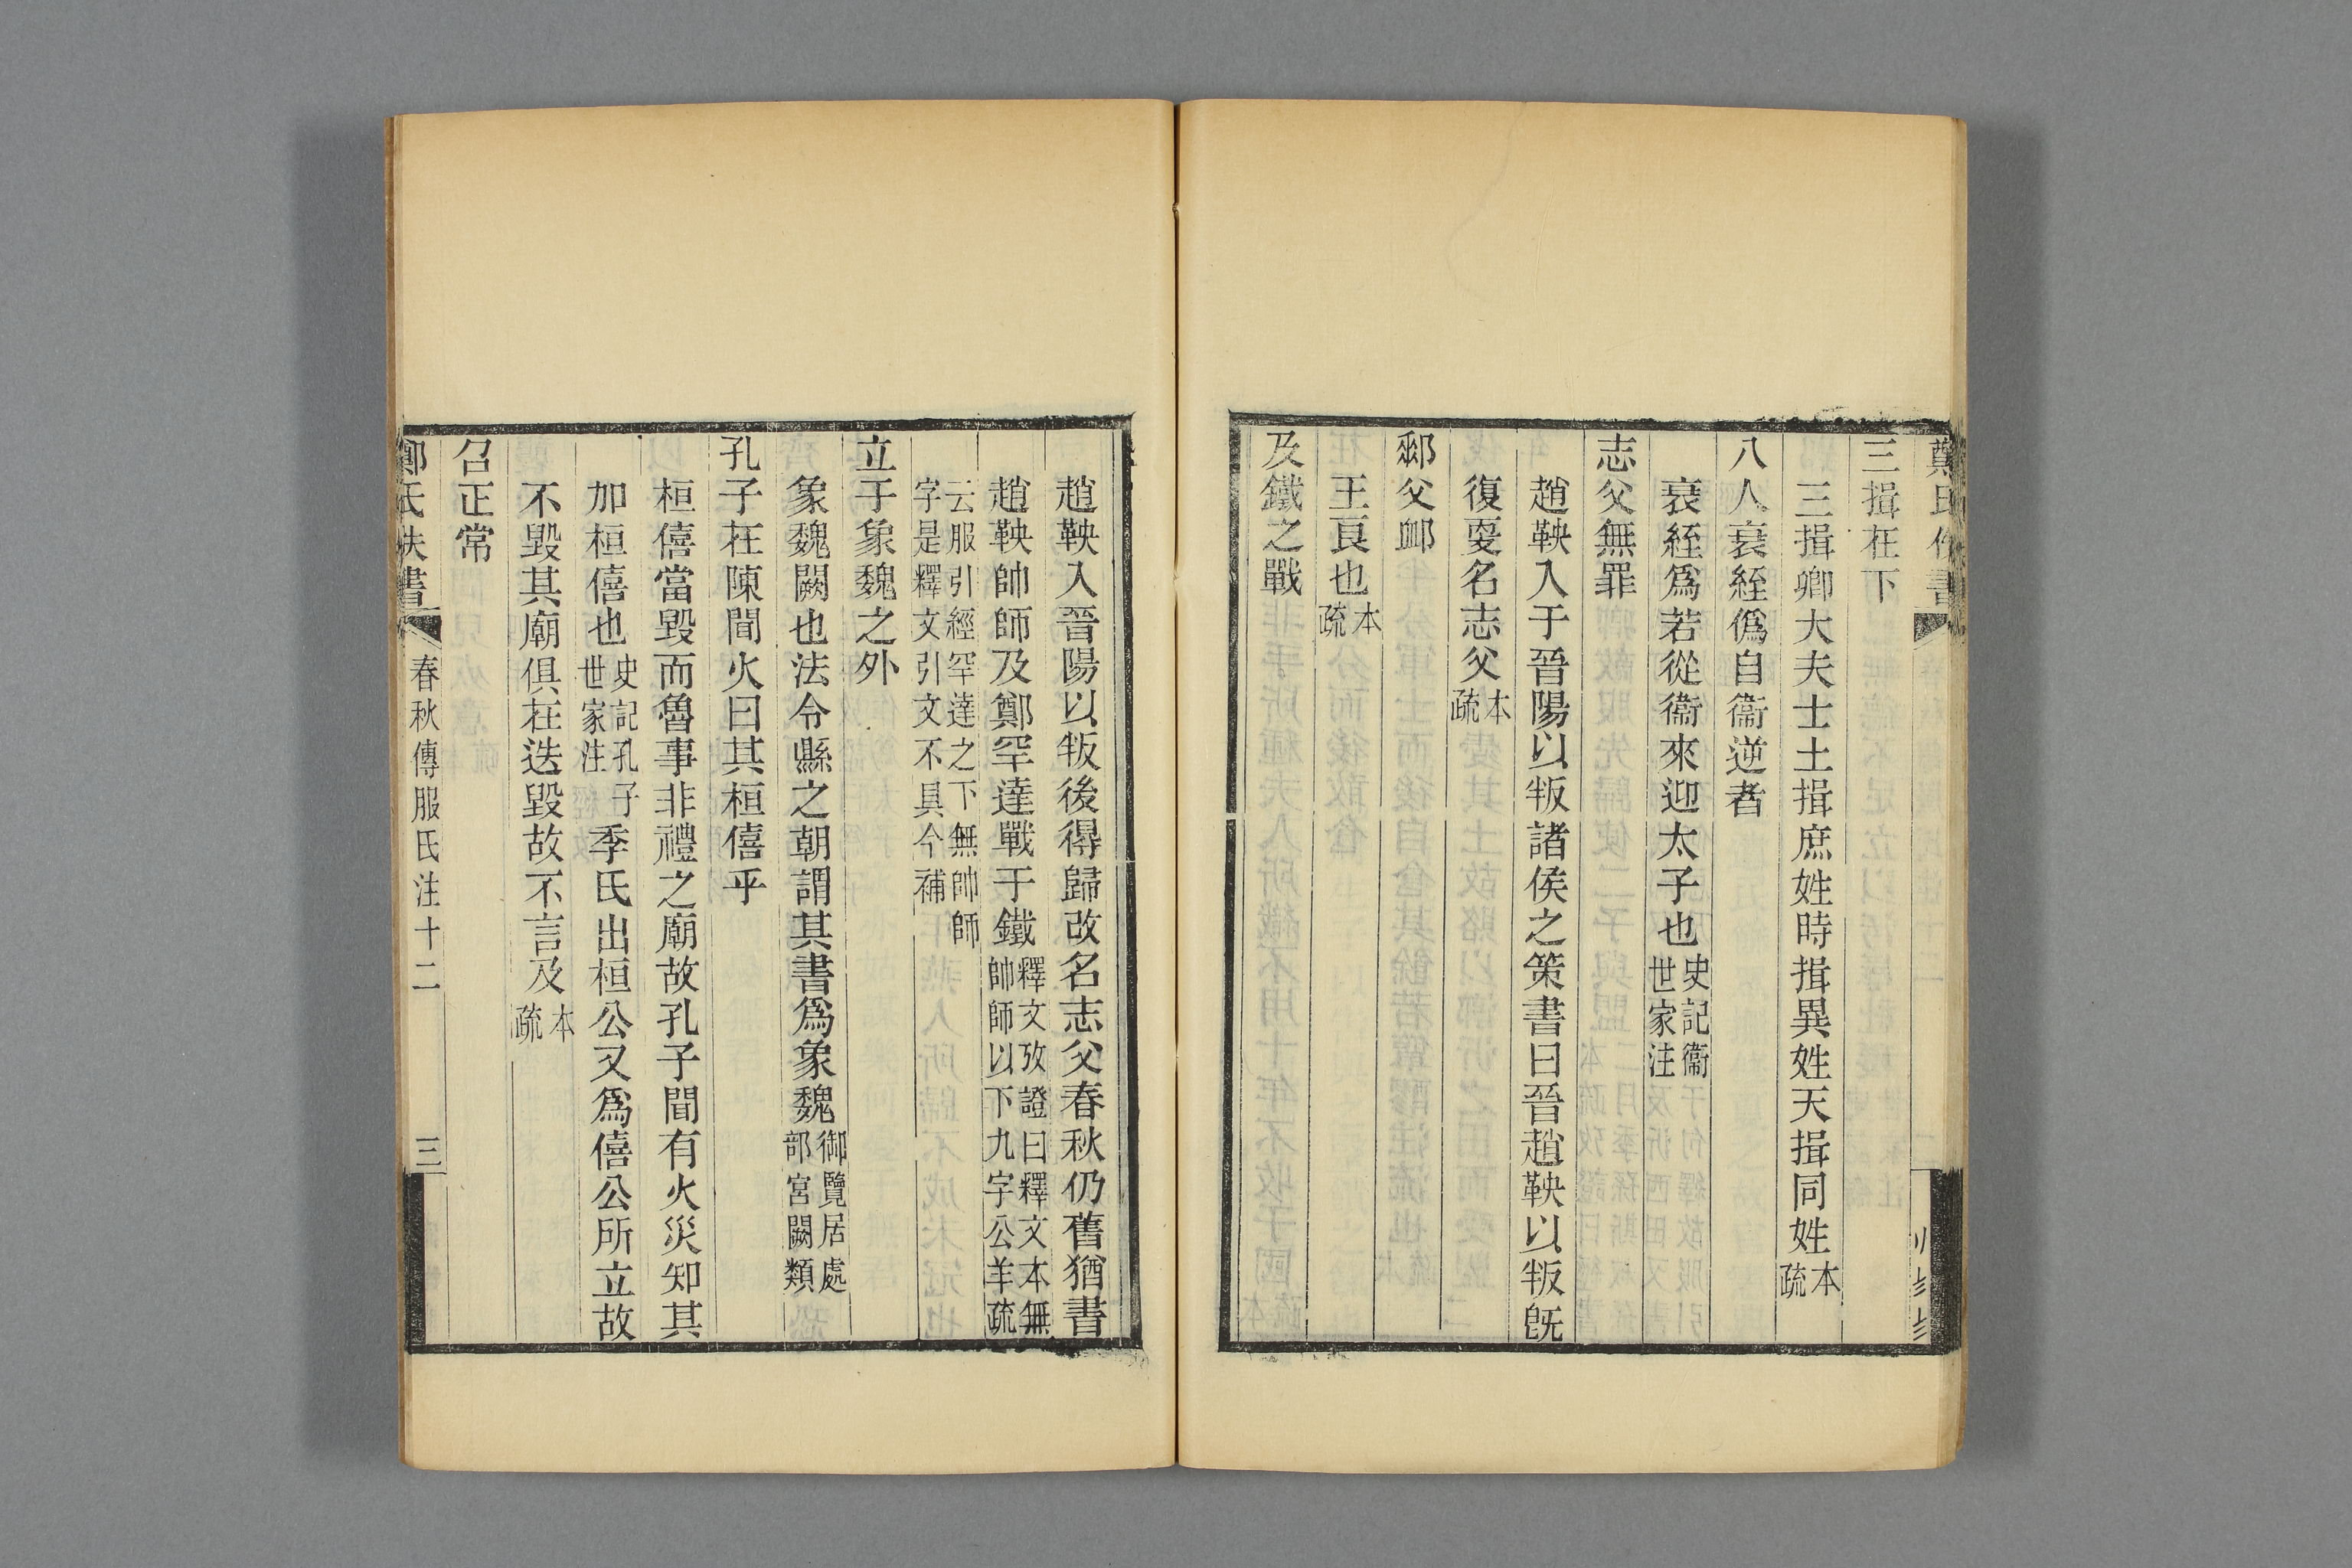 三揖在下
三揖卿大夫士土揖庶姓時揖異姓天揖同姓本疏
八人衰絰僞自衞逆者
衰絰爲若從衞來迎太子也史記衞世家注
志父無罪
趙鞅入于晉陽以叛諸侯之策書曰晉趙鞅以叛旣
復更名志父本疏
郵父卹
王良也本疏
及鐵之戰
趙鞅入晉陽以叛後得歸改名志父春秋仍舊猶書
趙鞅帥師及鄭罕達戰于鐵釋文攷證曰釋文本無帥師以下九字公羊疏
云服引經罕達之下無帥師字是釋文引文不具今補
立于象魏之外
象魏闕也法令縣之朝謂其書爲象魏御覽居處部宮闕類
孔子在陳聞火曰其桓僖乎
桓僖當毀而魯事非禮之廟故孔子聞有火災知其
加桓僖也史記孔子世家注季氏出桓公又爲僖公所立故
不毀其廟俱在迭毀故不言及本疏
召正常
鄭氏佚書 春秋傳服氏注十二 三